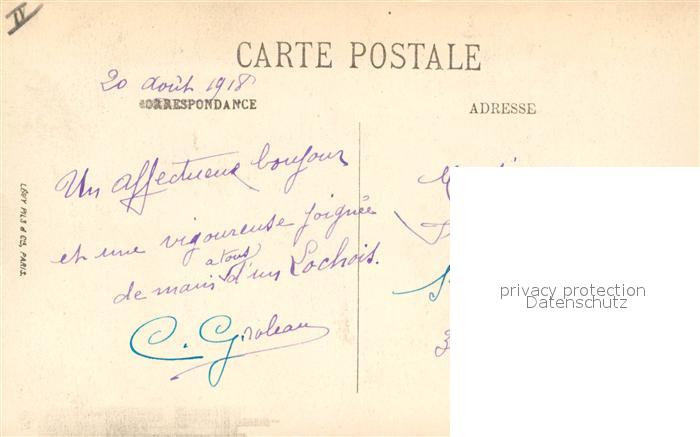 IV
CARTE POSTALE
20 août 1918
CORRESPONDANCE
ADRESSE
Un affectueux bonjour
et une vigoureuse poignée
a tous
de mains d'un Lochois.
LÉVY FILS & Cie, PARIS
privacy protection
Datenschutz